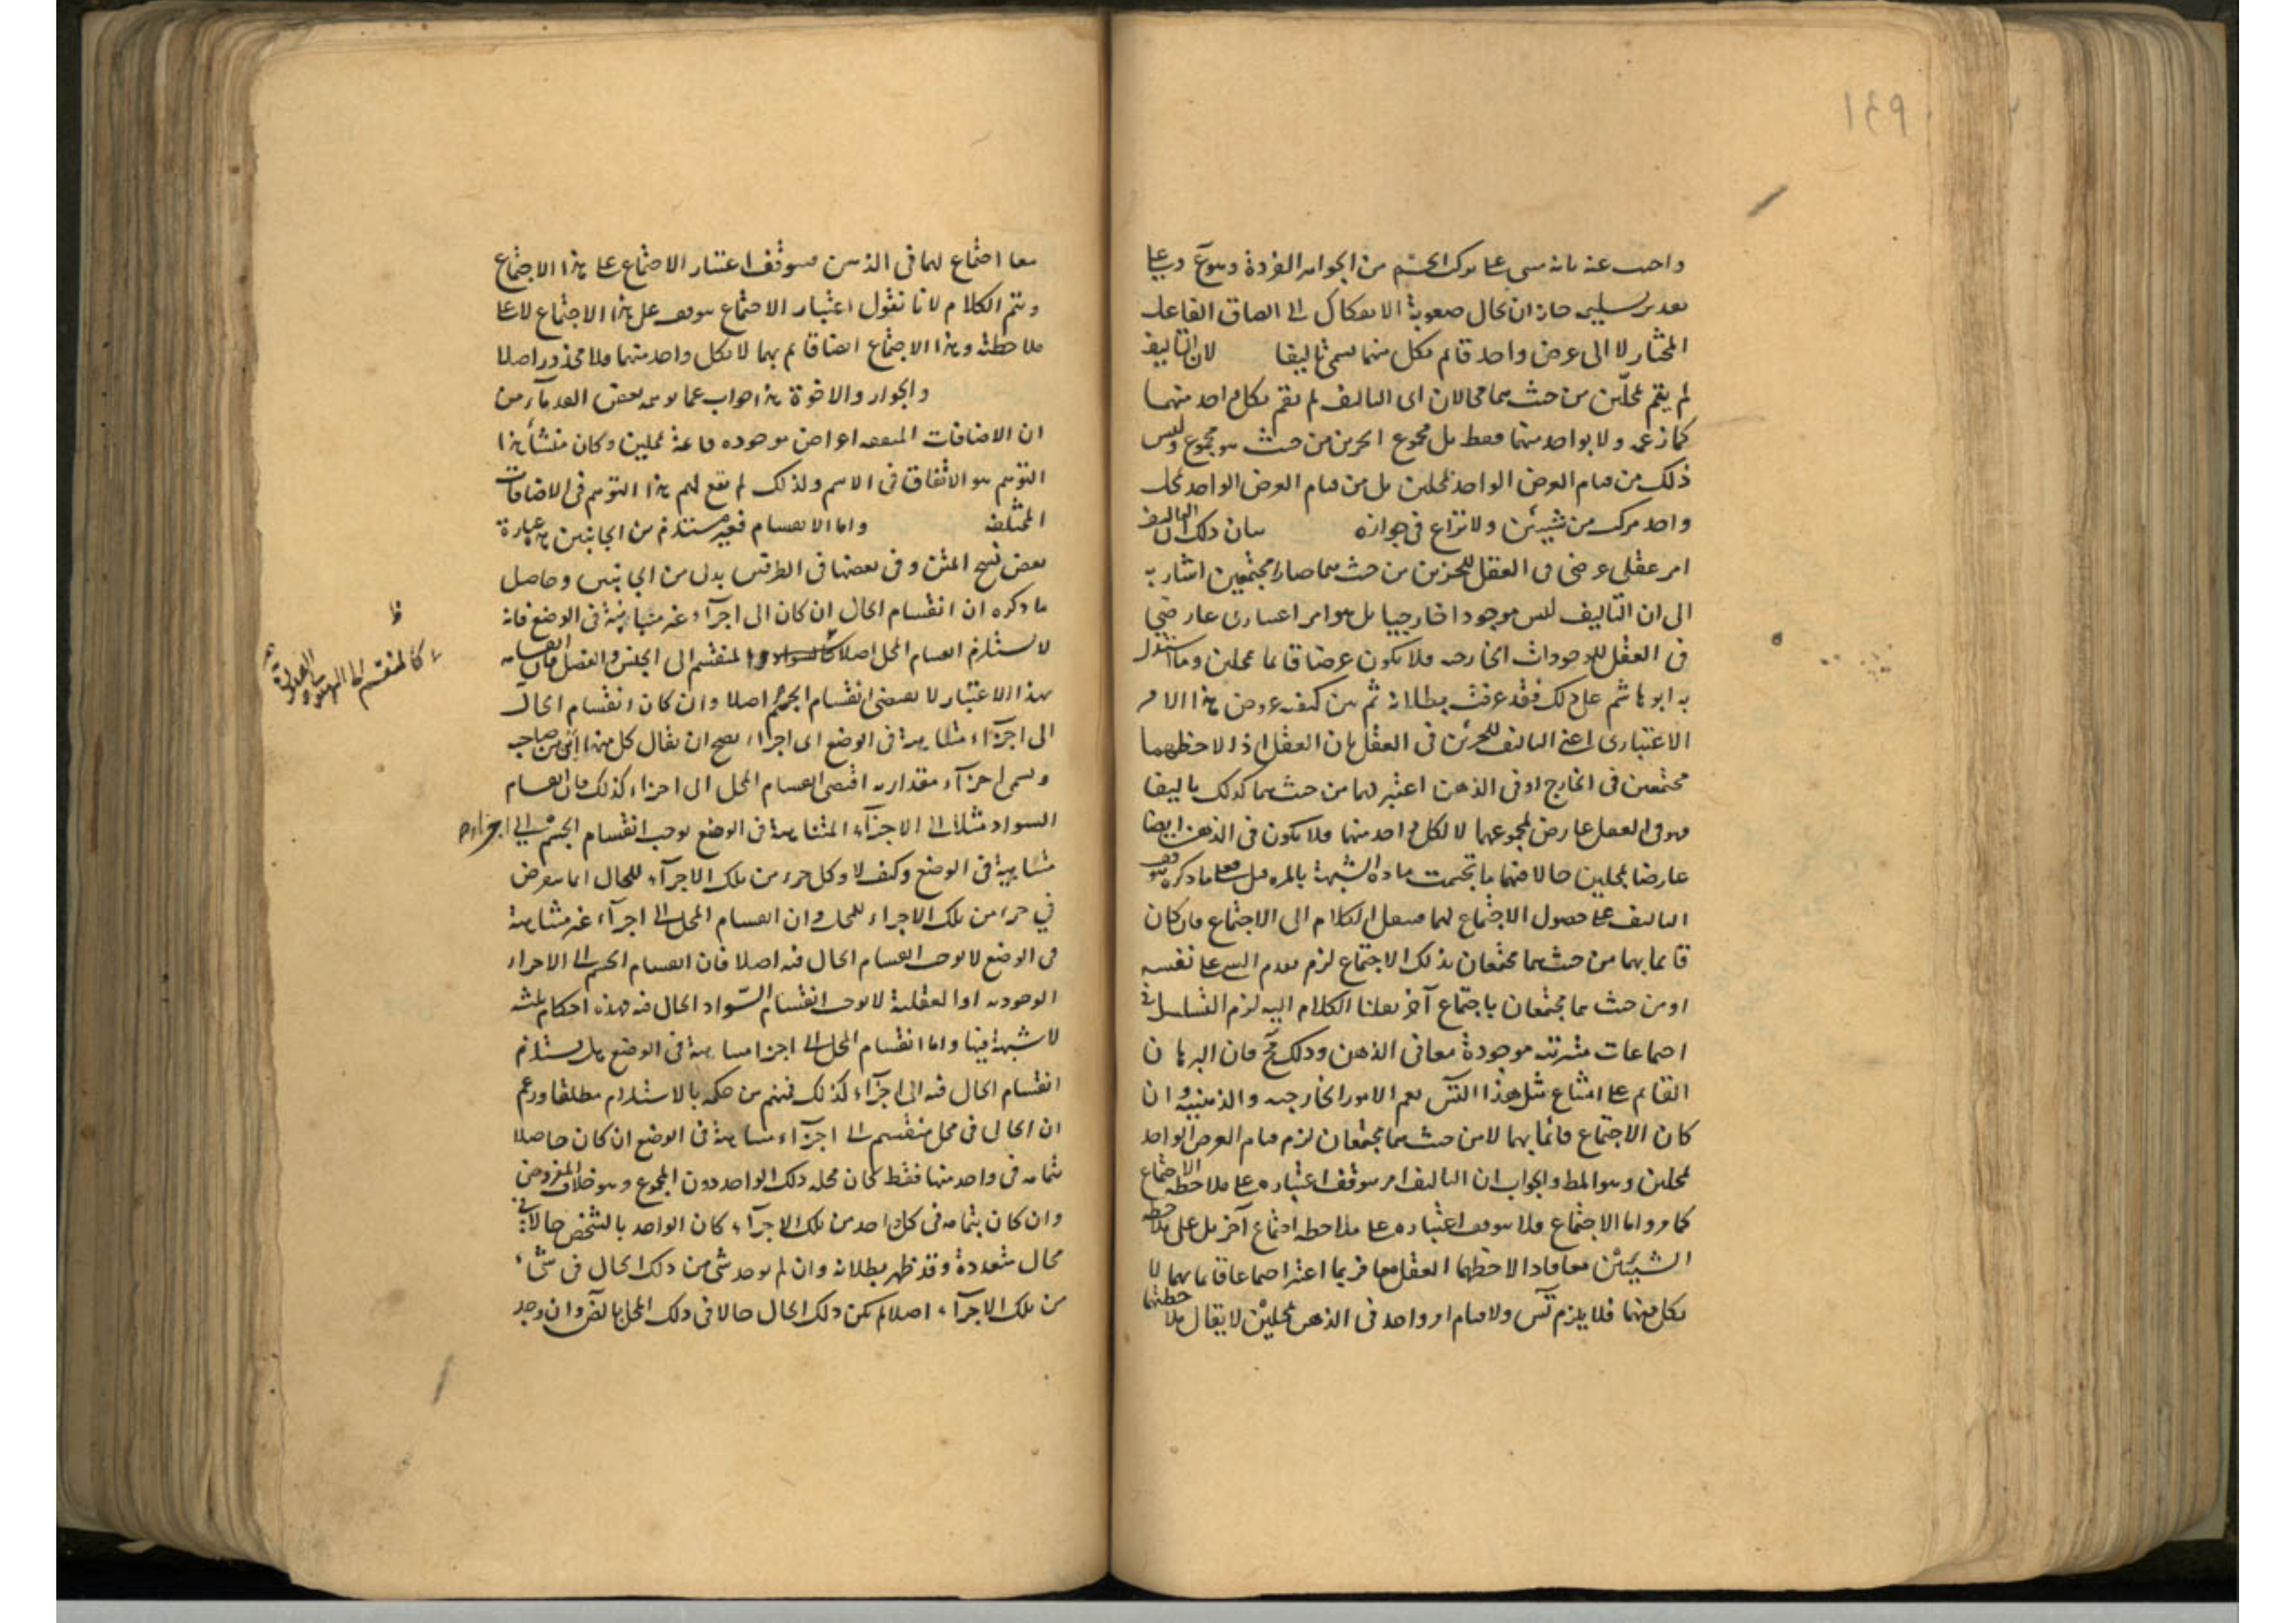 ١٤٩
واجيب عنه بانه مبنى على تركب الجسم من الجواهر الفردة وهو مم وعلى
تقدير تسليمه جاز ان يحال صعوبة الانفكاك الى الصاق الفاعل
المختار لا الى عرض واحد قائم بكل منهما يسمى تاليفا لان التاليف
لم يقم بمحلين من حيث هما محالان اى التاليف لم يقم بكل واحد منهما
كما زعمه ولا بواحد منهما فقط بل مجموع الجزئين من حيث هو مجموع وليس
ذلك من قيام العرض الواحد بمحلين بل من قيام العرض الواحد بمحل
واحد مركب من شيئين ولا نزاع فى جوازه بيان ذلك ان التاليف
امر عقلى عرضى فى العقل للجزئين من حيث هما صارا مجتمعين اشار به
الى ان التاليف ليس موجودا خارجيا بل هو امر اعتبارى عارض
فى العقل للموجودات الخارجيه فلا يكون عرضا قائما بمحلين وما استدل
به ابو هاشم على ذلك فقد عرفت بطلانه ثم بين كيفيه عروض هذا الامر
الاعتبارى اعنى التاليف للجزئين فى العقل بان العقل اذا لاحظهما
مجتمعين فى الخارج او فى الذهن اعتبر لهما من حيث هما كذلك تاليفا
فهو فى العقل عارض لمجموعهما لا لكل واحد منهما فلا يكون فى الذهن ايضا
عارضا لمحلين حالا فيهما فانحسمت مادة الشبهة بالمره قيل على ما ذكره توقف
التاليف على حصول الاجتماع لهما فينقل الكلام الى الاجتماع فان كان
قائما بهما من حيث هما مجتمعان بذلك الاجتماع لزم تقدم الشىء على نفسه
او من حيث هما مجتمعان باجتماع آخر نقلنا الكلام اليه لزم التسلسل فى
اجتماعات مترتبه موجودة معا فى الذهن وذلك مح فان البرهان
القائم على امتناع مثل هذا التس يعم الامور الخارجيه والذهنيه وان
كان الاجتماع قائما بهما لا من حيث هما مجتمعان لزم قيام العرض الواحد
بمحلين وهو المط والجواب ان التاليف امر يتوقف اعتباره على ملاحظه الاجتماع
كما مر واما الاجتماع فلا يتوقف اعتباره على ملاحظه اجتماع آخر بل على ملاحظه
الشيئين معا فاذا لاحظهما العقل معا فربما اعتبر اجتماعا قائما بهما لا
بكل منهما فلا يلزم تس ولا قيام امر واحد فى الذهن بمحلين لا يقال ملاحظتهما
معا اجتماع لهما فى الذهن فيتوقف اعتبار الاجتماع على هذا الاجتماع
ويتم الكلام لانا نقول اعتبار الاجتماع يتوقف على هذا الاجتماع لا على
ملاحظته وهذا الاجتماع ايضا قائم بهما لا بكل واحد منهما فلا محذور اصلا
والجوار والاخوة هذا جواب عما توهمه بعض القدمآء من
ان الاضافات المتفقه اعراض موجوده قائمة بمحلين وكان منشأ هذا
التوهم هو الاتفاق فى الاسم ولذلك لم يقع لهم هذا التوهم فى الاضافات
المختلفه واما الانقسام فغير مستلزم من الجانبين هذه عبارة
بعض نسخ المتن وفى بعضها فى الطرفين بدل من الجانبين وحاصل
ما ذكره ان انقسام الحال ان كان الى اجزآء غير متباينة فى الوضع فانه
لا يستلزم انقسام المحل اصلا كالسواد المنقسم الى الجنس والفصل فان انقسامه
بهذا الاعتبار لا يقتضى انقسام الجسم اصلا وان كان انقسام الحال
الى اجزآء متباينة فى الوضع اى اجزاء يصح ان يقال كل منها اين من صاحبه
ويسمى اجزآء مقداريه اقتضى انقسام المحل الى اجزاء كذلك فان انقسام
السواد مثلا الى الاجزآء المتباينة فى الوضع يوجب انقسام الجسم الى اجزاء
متباينة فى الوضع وكيف لا وكل جزء من تلك الاجزآء للحال انما يعرض
في جزء من تلك الاجزاء للمحل وان انقسام المحل الى اجزآء غير متباينة
فى الوضع لا يوجب انقسام الحال فيه اصلا فان انقسام الجسم الى الاجزاء
الوجوديه او العقلية لا يوجب انقسام السواد الحال فيه فهذه احكام ثلثه
لا شبهة فيها واما انقسام المحل الى اجزاء متباينة فى الوضع هل يستلزم
انقسام الحال فيه الى اجزآء كذلك فمنهم من حكم بالاستلزام مطلقا وزعم
ان الحال فى محل منقسم الى اجزآء متباينة فى الوضع ان كان حاصلا
بتمامه فى واحد منها فقط كان محله ذلك الواحد دون المجموع وهو خلاف المفروض
وان كان بتمامه فى كل واحد من تلك الاجزآء كان الواحد بالشخص حالا فى
محال متعددة وقد ظهر بطلانه وان لم يوجد شى من ذلك الحال فى شىء
من تلك الاجزآء اصلا لم يكن ذلك الحال حالا فى ذلك المحل بالضرورة وان وجد
ظ
كالمنقسم الى الهيولى والصورة